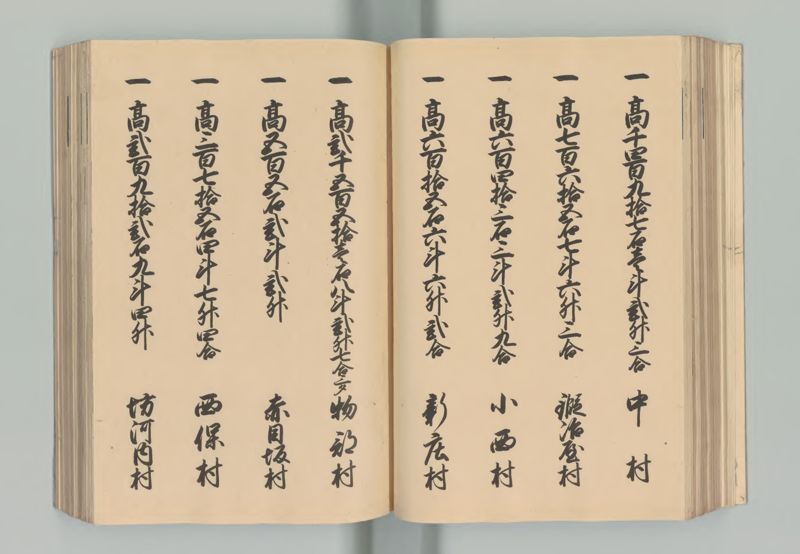 一 高千四百九拾七石壱斗弐升三合 中村
一 高七百六拾五石七斗六升三合 鍛冶屋村
一 高六百四拾三石三斗弐升九合 小西村
一 高六百拾五石六斗六升弐合 新庄村
一 高弐千五百五拾壱石八斗弐升七合 物部村
一 高五百五石弐斗弐升 赤目坂村
一 高三百七拾五石四斗七升四合 西保村
一 高弐百九拾弐石九斗四升 坊河内村